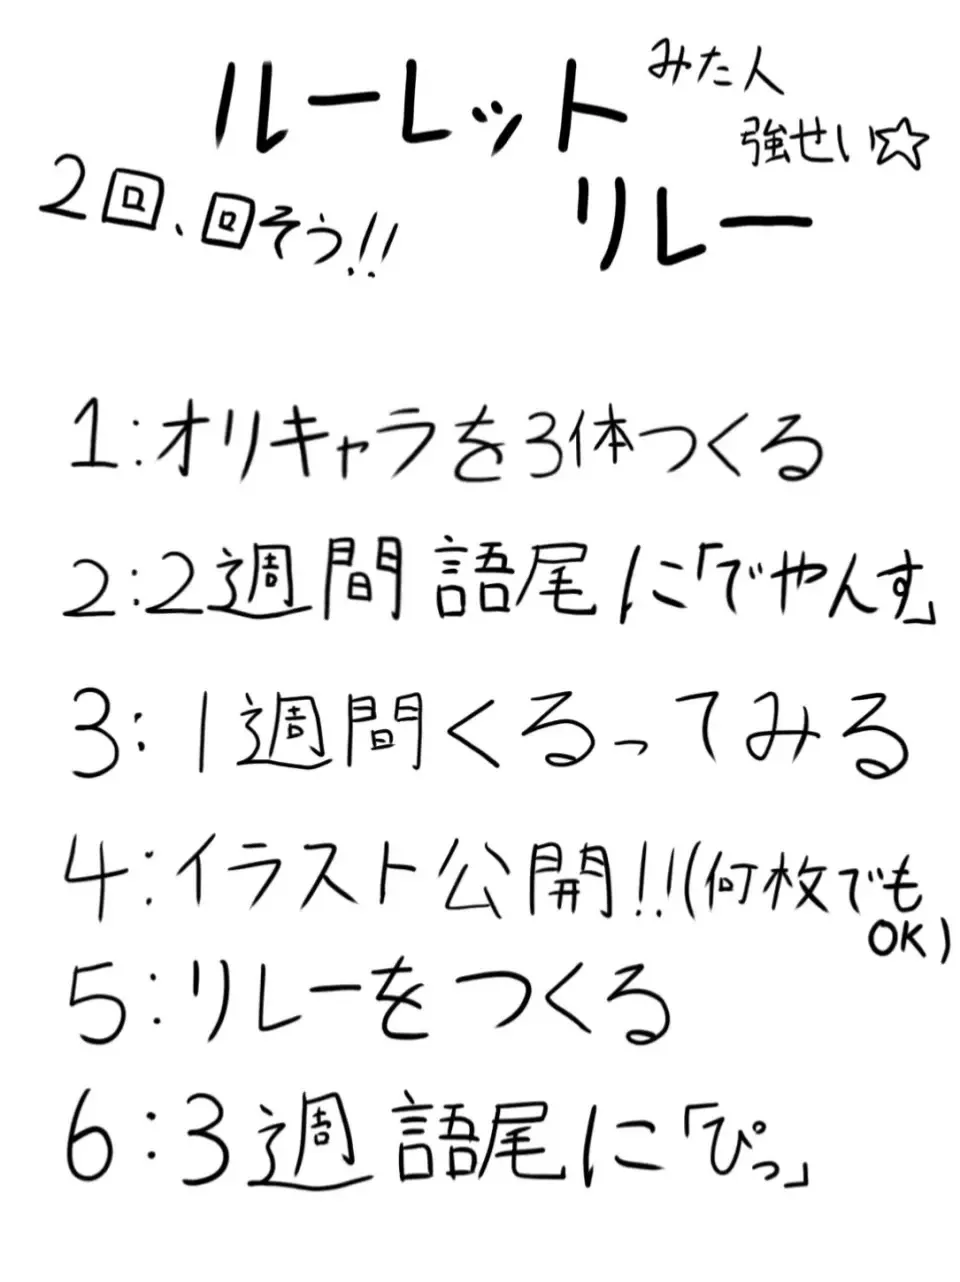 ルーレット
リレー
みた人
強せい☆
2回、回そう!!
1:オリキャラを3体つくる
2:2週間語尾に「でやんす」
3:1週間くるってみる
4:イラスト公開!!(何枚でも
OK)
5:リレーをつくる
6:3週語尾に「ぴっ」